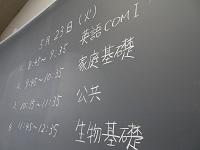 5月23日(火)
1. 8:45~9:35 英語COMI
2. 9:45~10:35 家庭基礎
3. 10:45~11:35 公共
4. 11:45~12:35 生物基礎